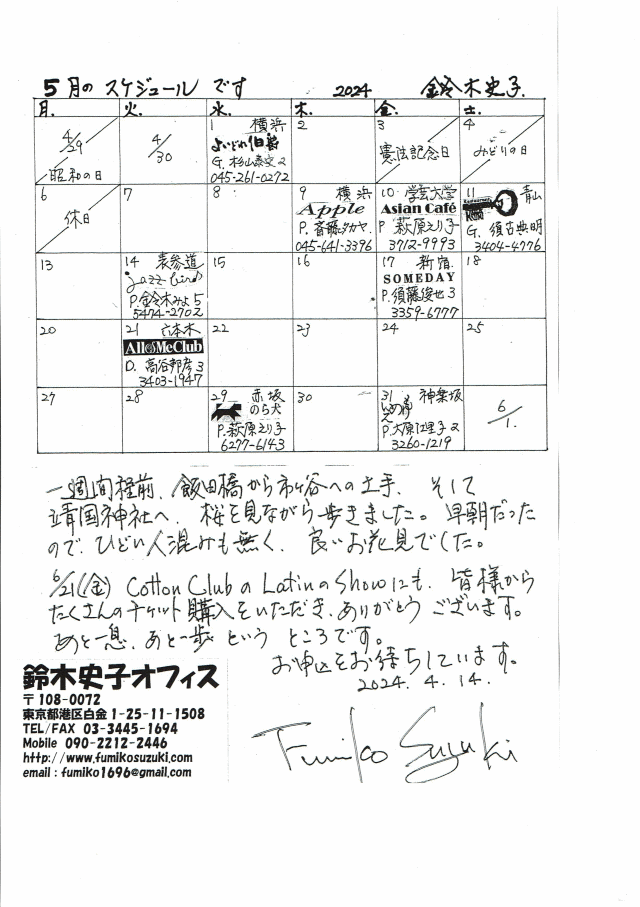 5月の スケジュール です 2024 鈴木史子.
月. 火. 水. 木. 金. 土.
4/29
昭和の日
4/30
1 横浜
よいどれ伯爵
G. 杉山泰史 2
045-261-0272
2
3
憲法記念日
4
みどりの日
6
休日
7
8
9 横浜
Apple
P. 斎藤タカヤ.
045-641-3396
10 学芸大学
Asian Café
P 萩原えり子
3712-9993
11 青山
G. 須古典明
3404-4776
13
14 表参道
jazz bird
P. 鈴木みよ 5
5474-2702
15
16
17 新宿.
SOMEDAY
P. 須藤俊也 3
3359-6777
18
20
21 六本木
All of Me Club
D. 高谷邦彦 3
3403-1947
22
23
24
25
27
28
29 赤坂
のら犬
P. 萩原えり子
6277-6143
30
31 神楽坂
P. 大原江里子 2
3260-1219
6/1.
一週間程前、飯田橋から市ヶ谷への土手、そして
靖国神社へ、桜を見ながら歩きました。早朝だった
ので、ひどい人混みも無く、良いお花見でした。
6/21(金) Cotton Club の Latin の Show にも、皆様から
たくさんのチケット購入をいただき、ありがとう ございます。
あと一息、あと一歩 という ところです。
お申込をお待ちしています。
2024. 4. 14.
鈴木史子オフィス
〒108-0072
東京都港区白金 1-25-11-1508
TEL/FAX 03-3445-1694
Mobile 090-2212-2446
http://www.fumikosuzuki.com
email : fumiko1696@gmail.com
Fumiko Suzuki